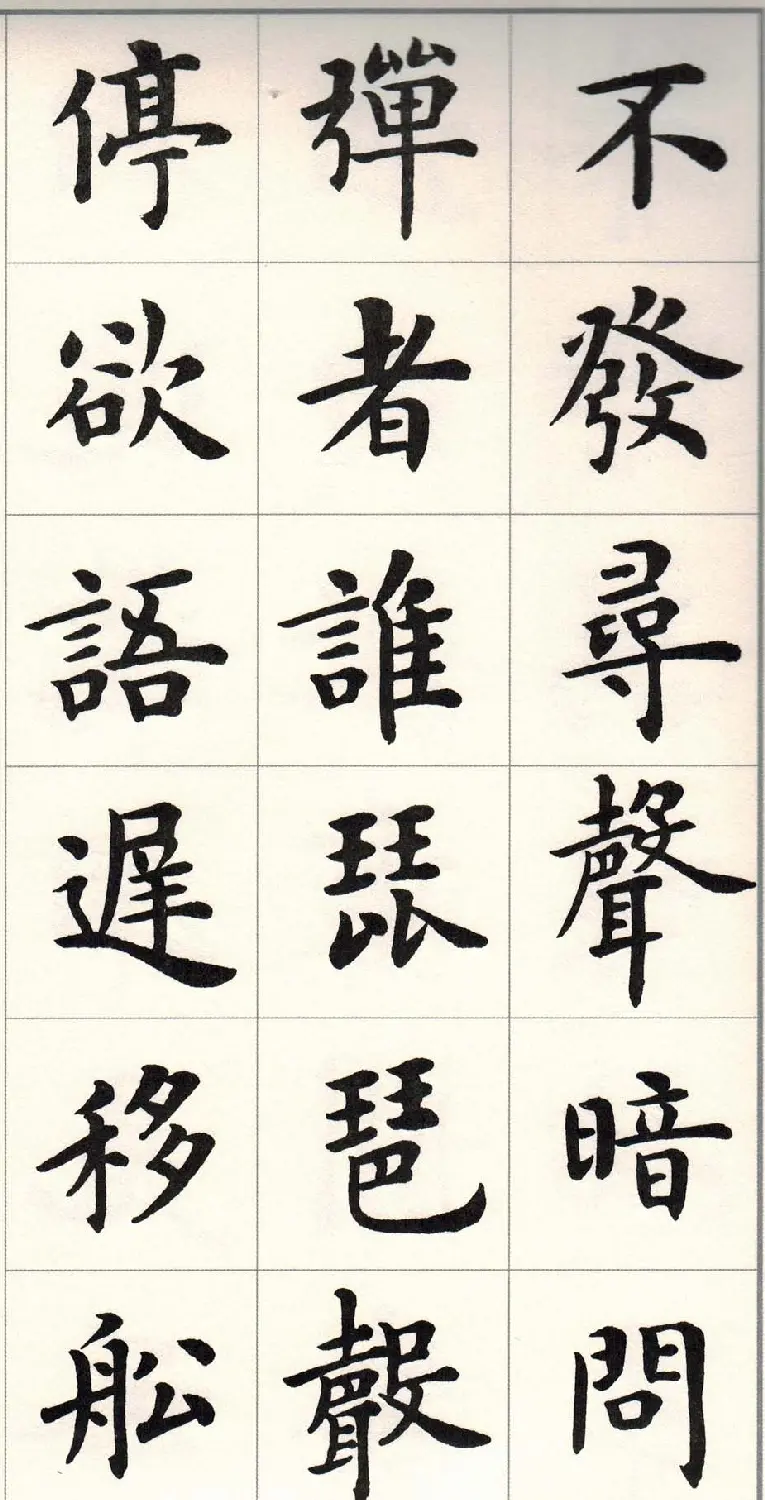 不發尋聲暗問
彈者誰琵琶聲
停欲語遲移舩